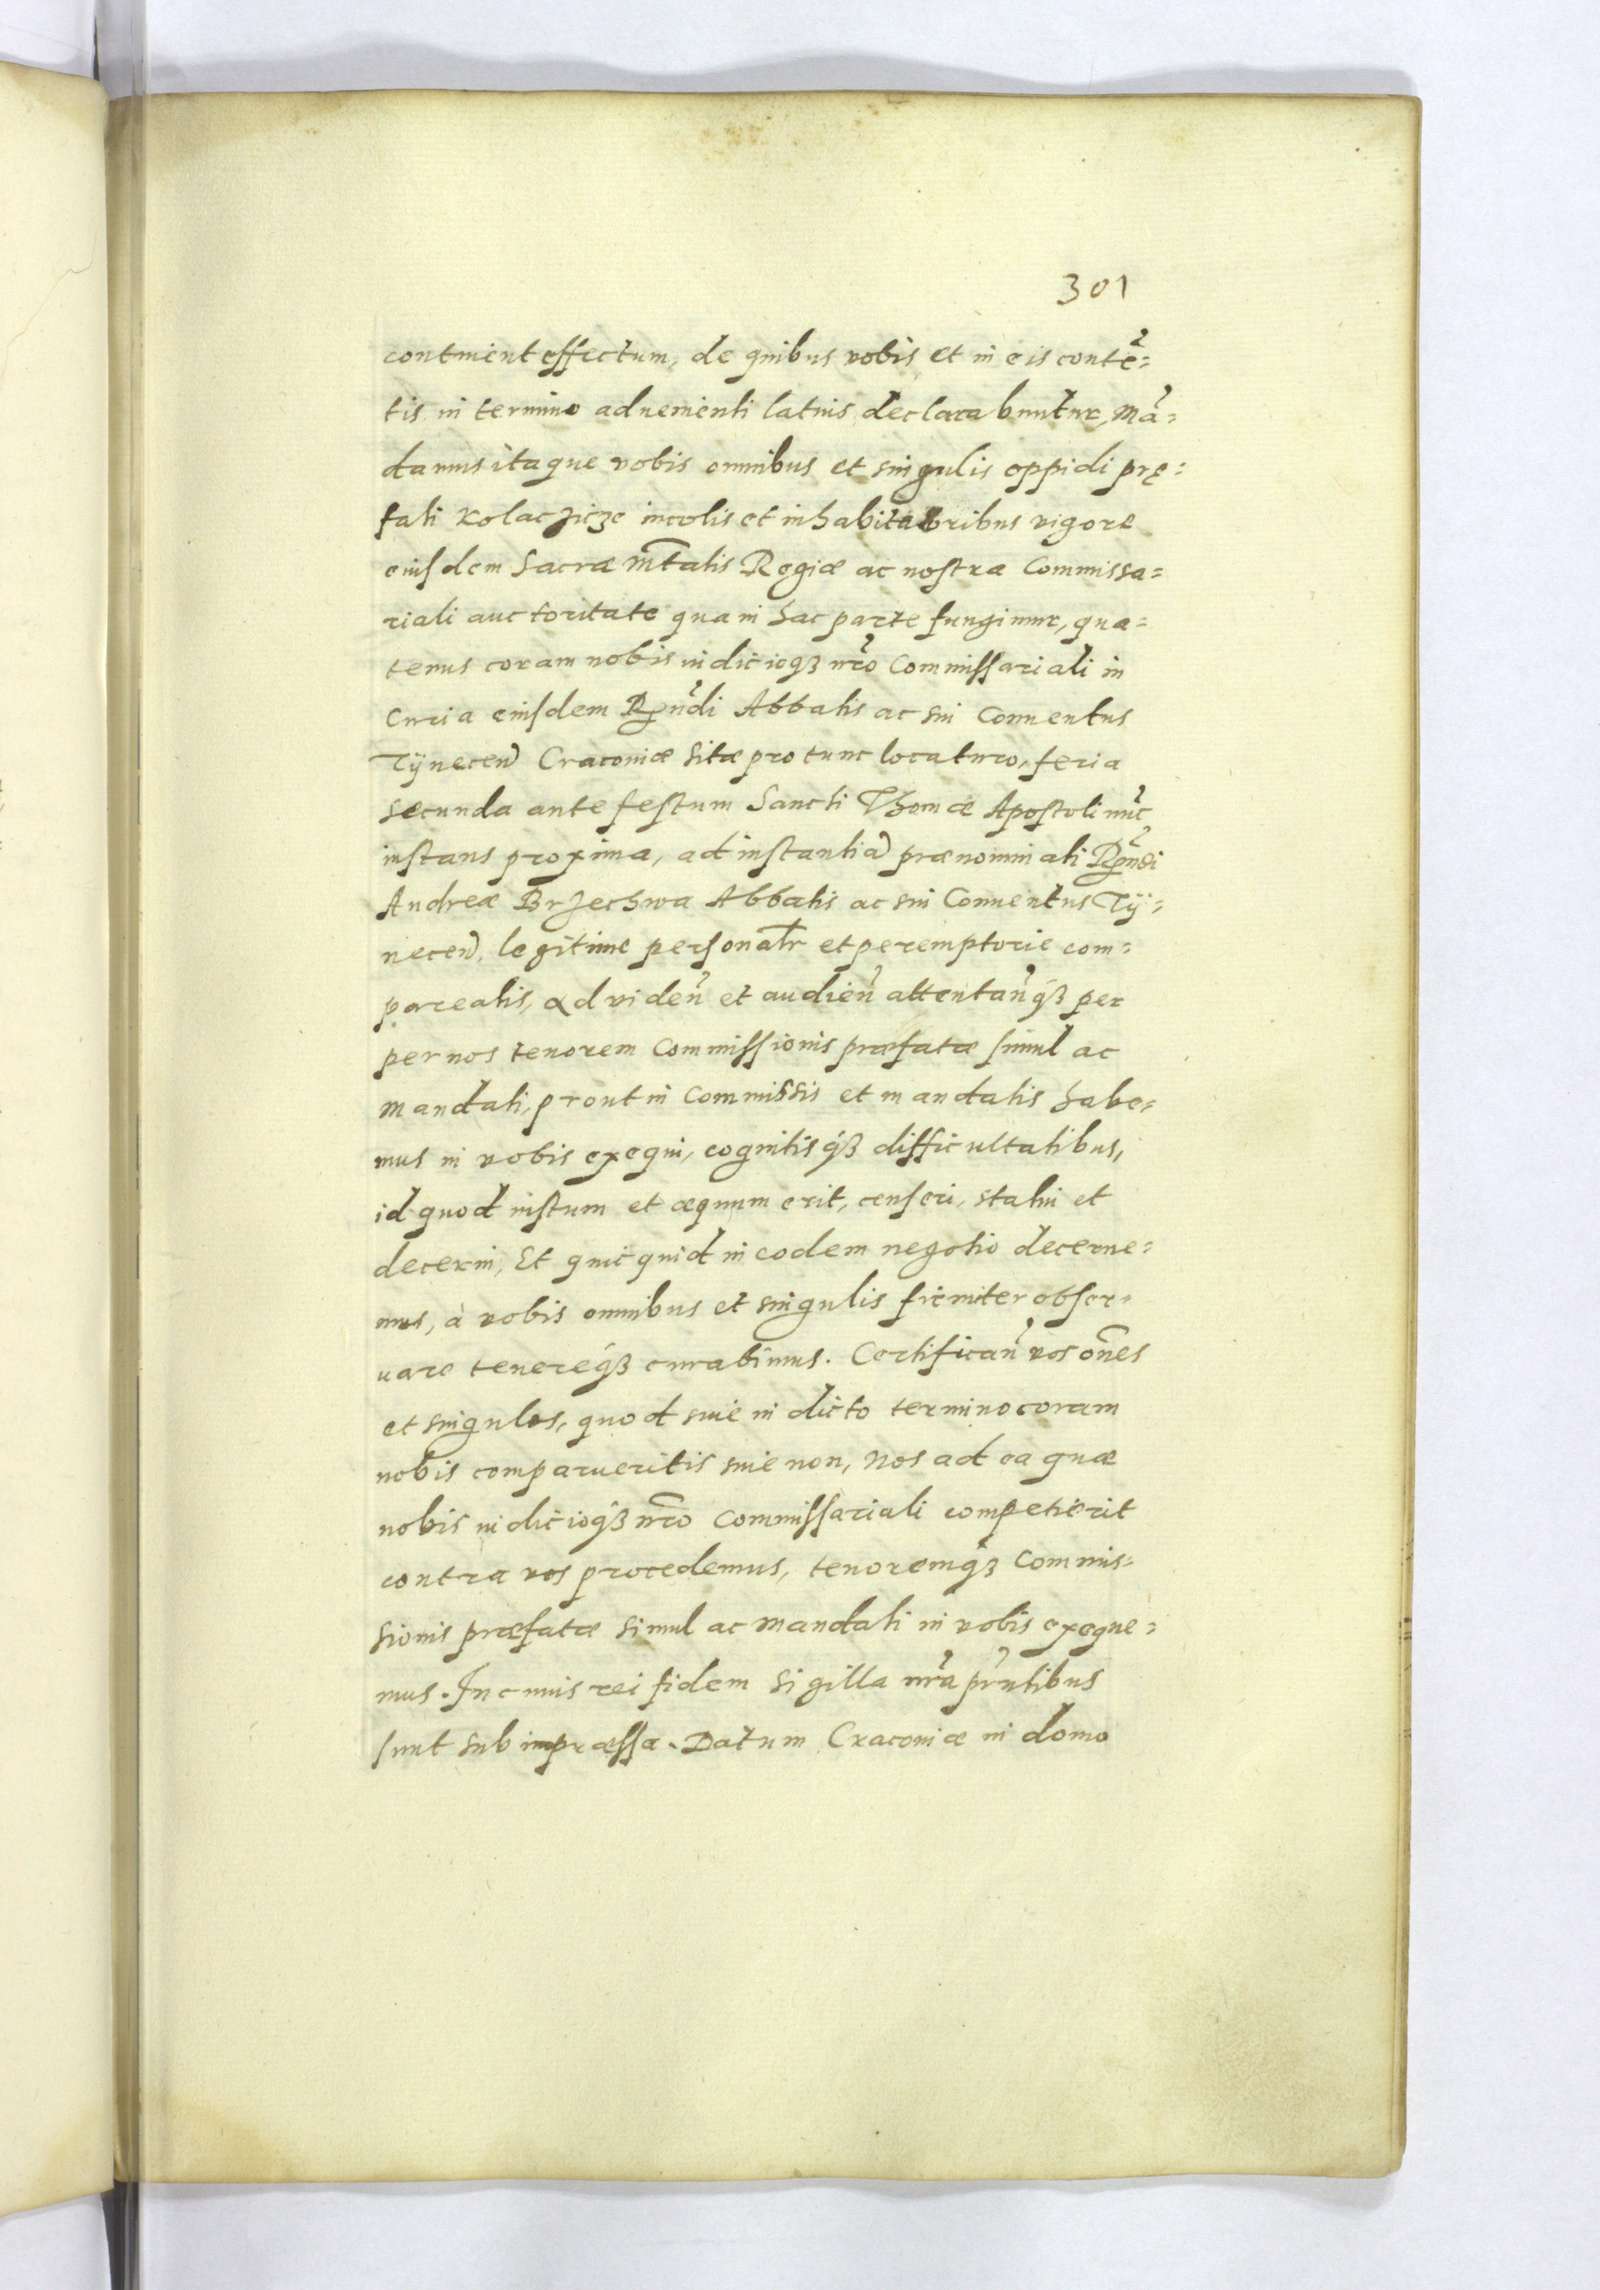 301
continent effectum, de quibus vobis et in eis contẽ=
tis in termino aduenienti latius declarabuntur, Mã=
damus itaque vobis omnibus et singulis oppidi prę=
fati Kolaczicze incolis et inhabitatoribus vigore
eiusdem Sacræ Mtatis Regiæ ac nostræ Commissa=
riali auctoritate qua in hac parte fungimur, qua=
tenus coram nobis iudicioqȝ nr̃o Commissariali in
Curia eiusdem Rn̑di Abbatis ac sui Conuentus
Tÿnecen̑ Cracouiæ sitæ pro tunc locaturo, feria
secunda ante festum Sancti Thomæ Apostoli nũc
instans proxima, ad instantia̅ prænominati Rn̑di
Andreæ Brzechwa Abbatis ac sui Conuentus Tÿ=
necen̑, legitime personalr̃ et peremptorie com=
pareatis, ad viden̑ et audien̑ attentan̑qȝ per
per nos tenorem Commissionis præfatæ simul ac
Mandati, prout in Commissis et mandatis habe=
mus in vobis exequi, cognitisqȝ difficultatibus,
id quod iustum et æquum erit, censeri, statui et
decerni, Et quicquid in eodem negotio decerne=
mus, à vobis omnibus et singulis firmiter obser=
uare tenereqȝ curabimus. Certifican̑ vos om̃es
et singulos, quod siue in dicto termino coram
nobis comparueritis siue non, Nos ad ea quæ
nobis iudicioqȝ nr̃o Commissariali competierit
contra vos procedemus, tenoremqȝ Commis=
sionis præfatæ simul ac Mandati in vobis exeque=
mus. In cuius rei fidem Sigilla nr̃a prn̑tibus
sunt subimpræssa. Datum Cracouiæ in domo